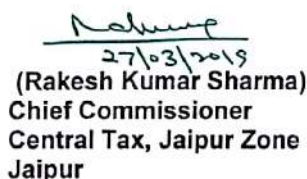 27/03/2019
(Rakesh Kumar Sharma)
Chief Commissioner
Central Tax, Jaipur Zone
Jaipur